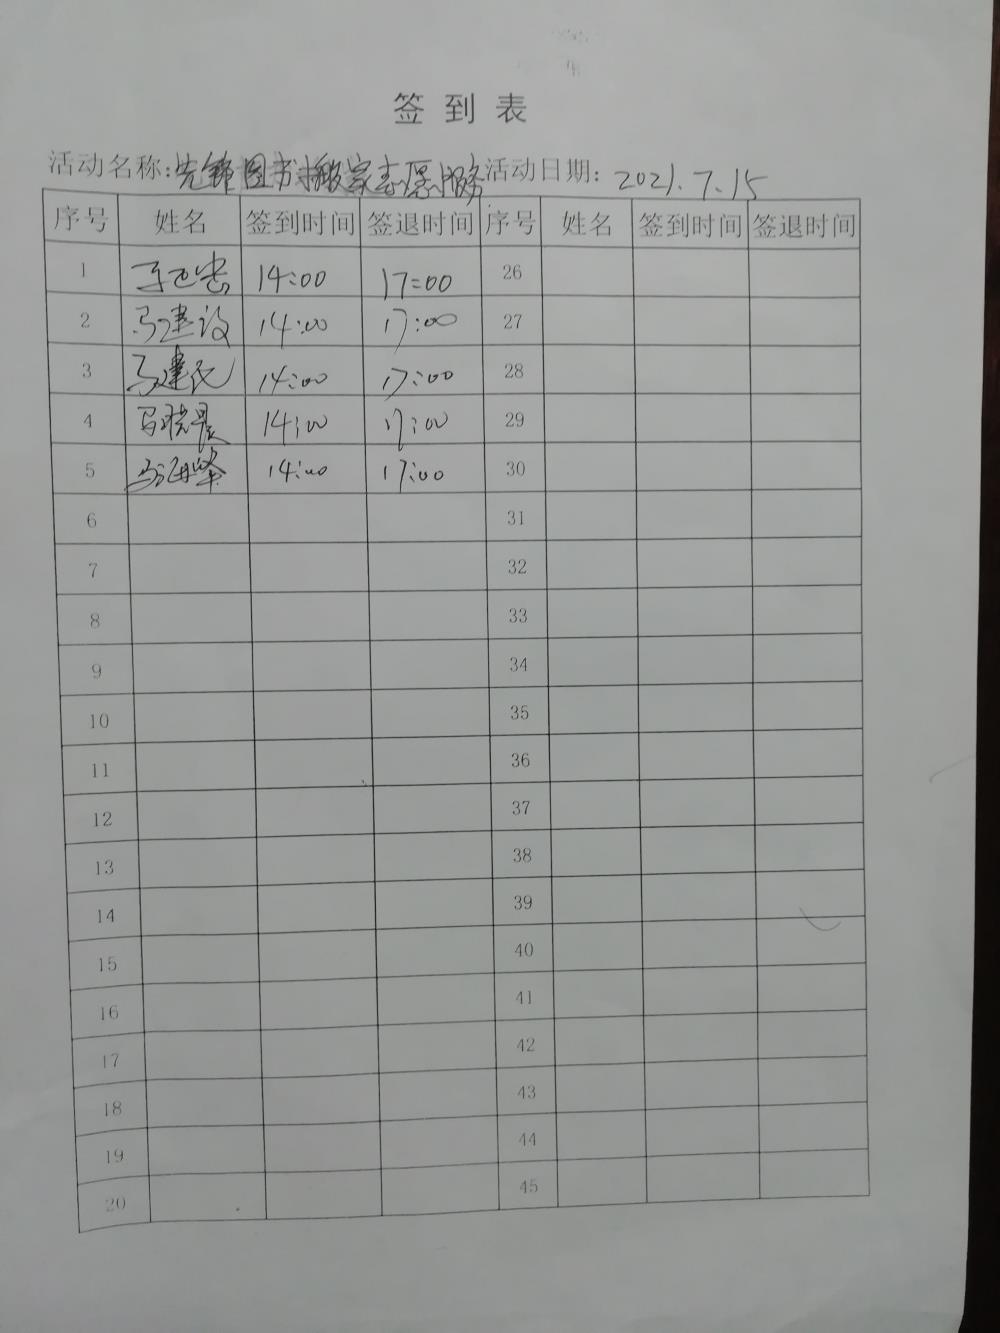 签到表
活动名称:先锋图书搬家志愿服务 活动日期: 2021.7.15
序号 姓名 签到时间 签退时间 序号 姓名 签到时间 签退时间
1 14:00 17:00 26
2 马建设 14:00 17:00 27
3 马建民 14:00 17:00 28
4 马晓晨 14:00 17:00 29
5 马海峰 14:00 17:00 30
6 31
7 32
8 33
9 34
10 35
11 36
12 37
13 38
14 39
15 40
16 41
17 42
18 43
19 44
20 45